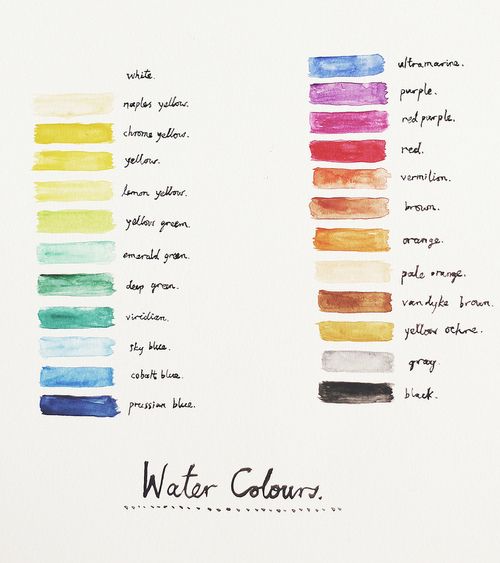 white.
naples yellow.
chrome yellow.
yellow.
lemon yellow.
yellow green.
emerald green.
deep green.
viridian.
sky blue.
cobalt blue.
prussian blue.
ultramarine.
purple.
red purple.
red.
vermilion.
brown.
orange.
pale orange.
vandyke brown.
yellow ochre.
gray.
black.
Water Colours.